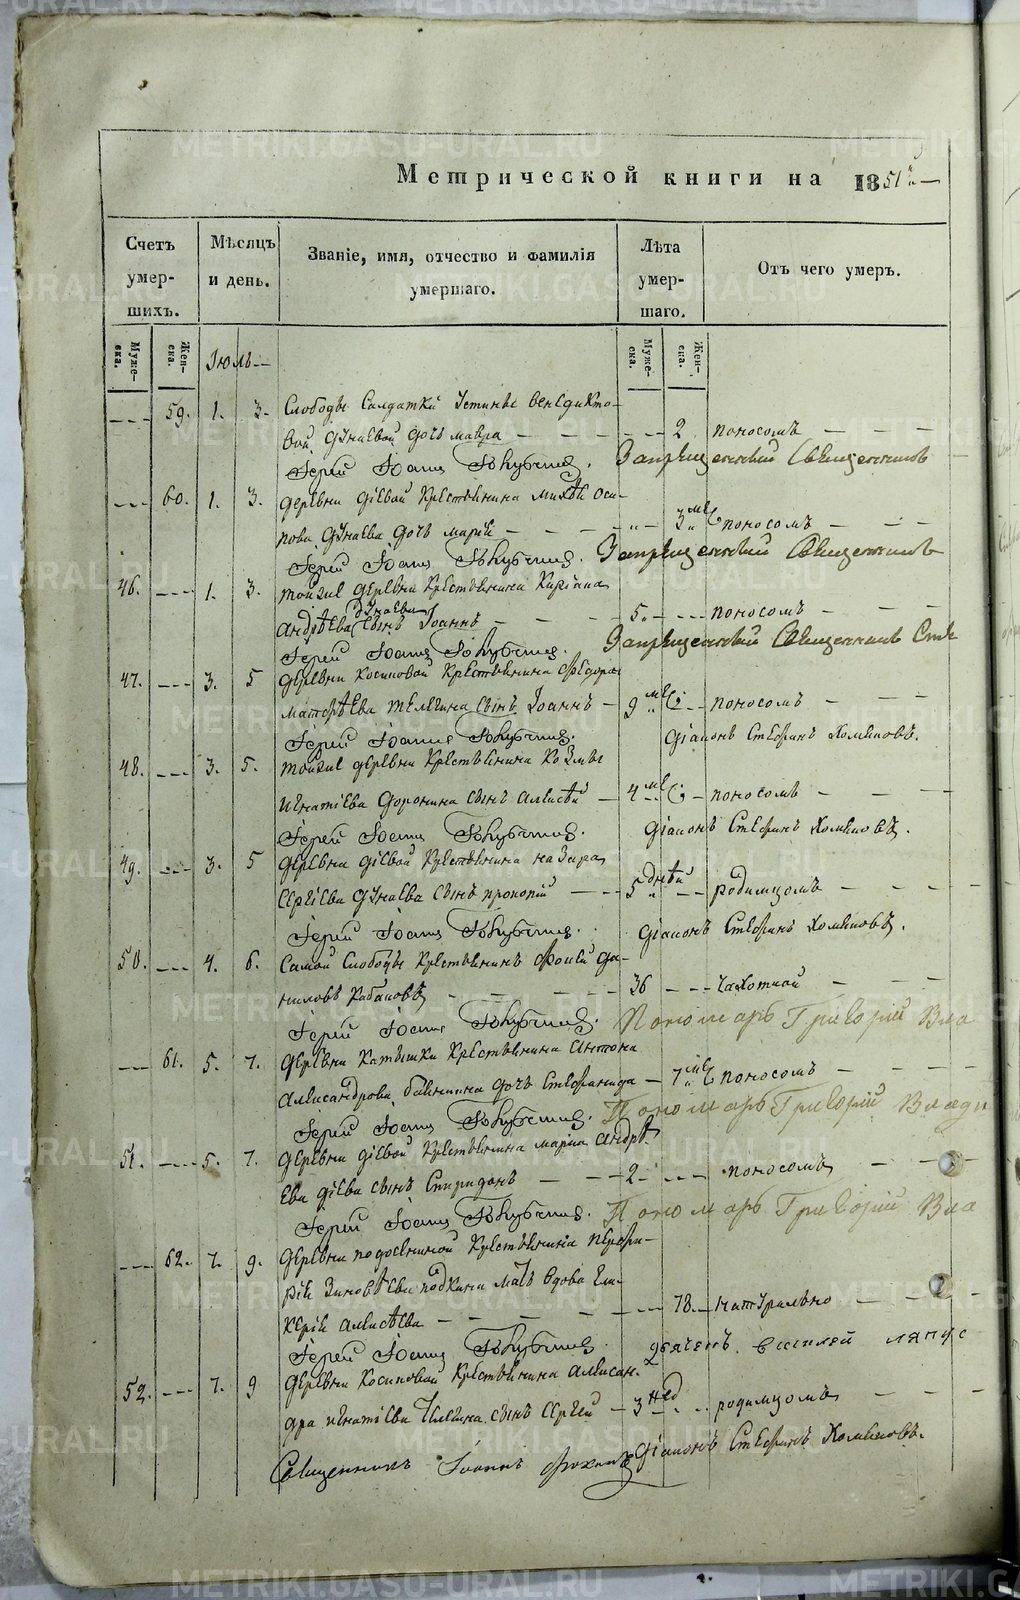 Метрической книги на 1851й
Счетъ умер-шихъ.
Мѣсяцъ и день.
Званіе, имя, отчество и фамилія умершаго.
Лѣта умер-шаго.
Отъ чего умеръ.
Муже-ска.
Жен-ска.
Іюль
Муже-ска.
Жен-ска.
59. 1. 3. Слободы Солдатки Устиньи Венедикто-
вой Дунаевой дочь Мавра 2 поносомъ
Іерей Іоаннъ Запрещенный Священникъ
60. 1. 3. деревни Діевой Крестьянина Михѣи Оси-
пова Дунаева дочь Марія 3 мес поносомъ
Іерей Іоаннъ Запрещенный Священникъ
46. 1. 3. тойже деревни Крестьянина Киріана
Дунаева
Андрѣева сынъ Іоаннъ 5. поносомъ
Іерей Іоаннъ Запрещенный Священникъ Сте
47. 3. 5 деревни Косиковой Крестьянина Федора
Матфѣева Телегина сынъ Іоаннъ 9 мес поносомъ
Іерей Іоаннъ Діаконъ Стефанъ Хомяковъ.
48. 3. 5. тойже деревни Крестьянина Козмы
Игнатіева Доронина сынъ Алексѣй 4 мес поносомъ
Іерей Іоаннъ Діаконъ Стефанъ Хомяковъ.
49. 3. 5 деревни Діевой Крестьянина Назара
Сергіева Дунаева сынъ Прокопій 5 дней родимцомъ
Іерей Іоаннъ Діаконъ Стефанъ Хомяковъ.
50. 4. 6. Самой Слободы Крестьянинъ Фокей Да-
ниловъ Кабаковъ 36 чахоткой
Іерей Іоаннъ Пономарь Григорій Вла
61. 5. 7. деревни Катышки Крестьянина Антона
Александрова дочь Стефанида 7 мес поносомъ
Іерей Іоаннъ Пономарь Григорій Влади
51. 5. 7. деревни Діевой Крестьянина Марка Андрѣ-
ева Діева сынъ Спиридонъ 2 поносомъ
Іерей Іоаннъ Пономарь Григорій Вла
62. 7. 9. деревни Крестьянина Перфи-
рія Зиновѣева мать вдова Гли-
керія Алексѣева 78. натурально
Іерей Іоаннъ дьячекъ Василей Ляпус
52. 7. 9 деревни Косиковой Крестьянина Алексан-
дра Игнатіева сынъ Сергей 3 нед родимцомъ
Священникъ Іоаннъ Діаконъ Стефанъ Хомяковъ.
METRIKI.GASO-URAL.RU